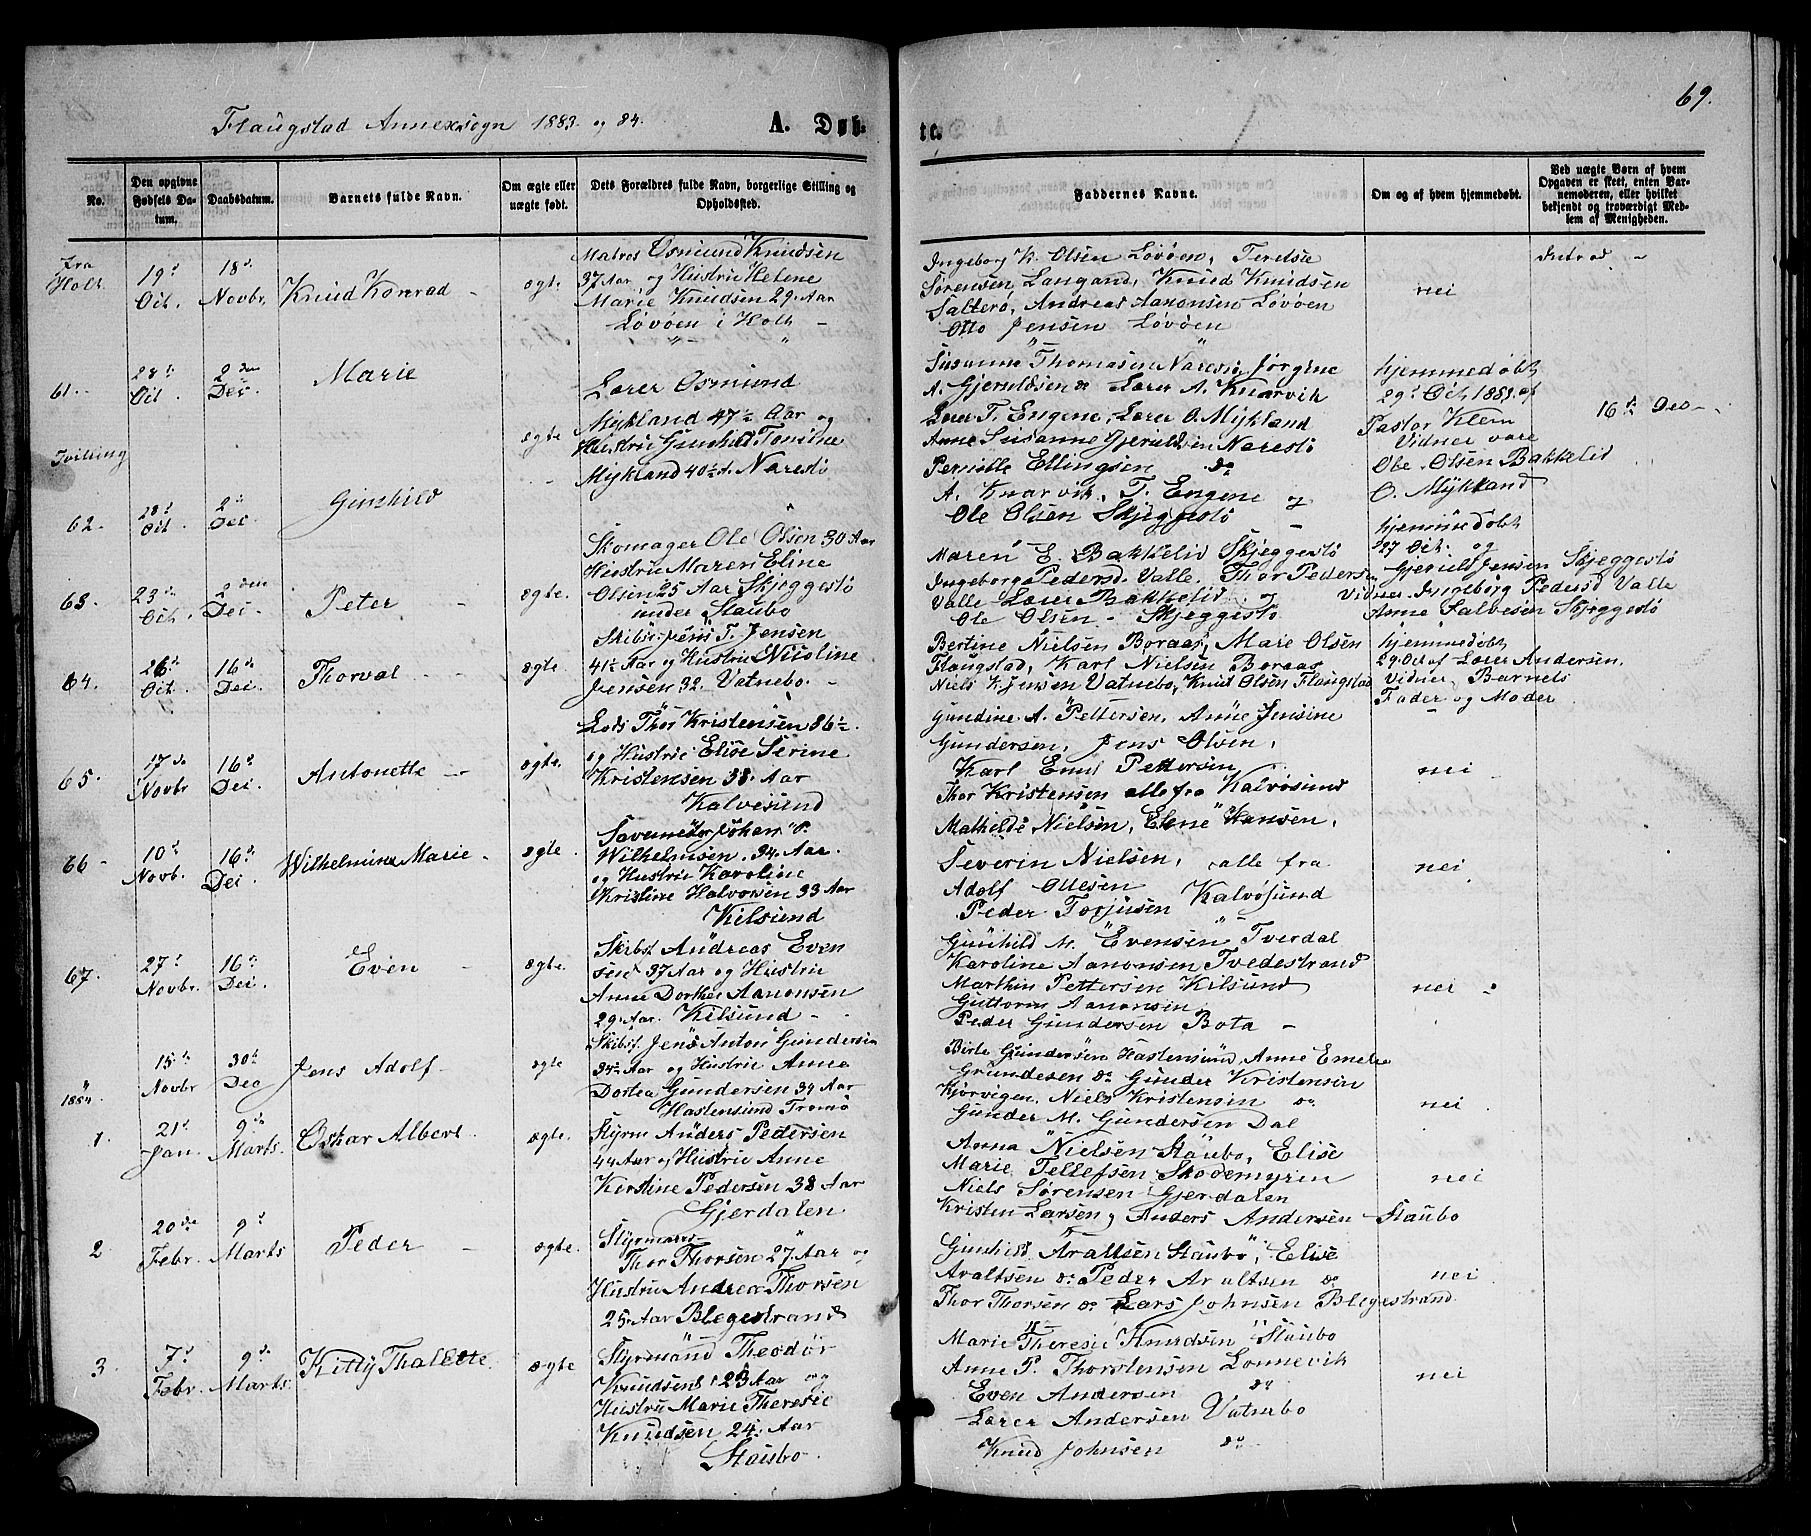 69.
Flaugstad Annexsogn 1883 og 84.
A. Døb-
te.
No.
Den opgivne Fødsels Datum.
Daabsdatum.
Barnets fulde Navn.
Om ægte eller uægte født.
Dets Forældres fulde Navn, borgerlige Stilling og Opholdssted.
Faddernes Navne.
Om og af hvem hjemmedøbt.
Ved uægte Børn af hvem Opgaven er skeet, enten Barnemoderen, eller hvilket bekjendt og troværdigt Medlem af Menigheden.
fra Holt
19d Oct.
18d Novbr.
Knud Konrad
ægte.
Matros Osmund Knudsen
37 Aar og Hustru Helene
Marie Knudsen 29 Aar
Løvøen i Holt
Ingeborg K. Olsen Løvøen, Teresie
Sørensen, Langand, Knud Knudsen
Salterø, Andreas Aanonsen Løvøen
Otto Jensen Løvøen
nei
61.
28d Oct.
2den Dec.
Marie
Tvilling
62.
28d Oct.
2d Dec.
Gunhild
ægte
Lærer Osmund
Mykland 47½ Aar og
Hustru Gunhild Tomine
Mykland 40½ A. Narestø
Susanna Thomasen Narestø, Jørgine
A. Gjeruldsen do Lærer A. Knarvik
Lærer T. Engene, Lærer O. Mykland
Anne Susanne Gjeruldsen Narestø
Pernille Ellingsen do
A. Knarvik, T. Engene og
Ole Olsen Skjeggestø
hjemmedøbt
29d Oct. 1883 af
Pastor Klem
Vidner vare
Ole Olsen Bakkelid
O. Mykland
16d Dec.
63.
23d Oct.
2den Dec.
Peter
ægte.
Skomager Ole Olsen 30 Aar
Hustru Maren Eline
Olsen 25 Aar Skjeggestø
under Staubo
Maren E. Bakkelid Skjeggestø
Ingeborg Pedersd. Valle. Thor Pedersen
Valle Lærer Bakkelid og
Ole Olsen Skjeggestø
hjemmedøbt
27 Oct. og
Gjeruld Jensen Skjeggestø
Vidner Ingeborg Pedersd Valle
Anne Salvesen Skjeggestø
64.
26d Oct.
16d Dec.
Thorval
ægte.
Skibsf. Jens T. Jensen
41½ Aar og Hustru Nicoline
Jensen 32. Vatnebo.
Bertine Nielsen Boraas, Mare Olsen
Flaugstad, Karl Nielsen Boraas
Niels K Jensen Vatnebo, Knut Olsen Flaugstad
hjemmedøbt
29 Oct af Lærer Andersen,
Vidner Barnets
Fader og Moder
65.
17de Novbr
16d Dec.
Antonette
ægte.
Lods Thor Kristensen 36½
og Hustru Elise Serine
Kristensen 38 Aar
Kalvesund
Gundine A. Pettersen, Anne Jensine
Gundersen, Jens Olsen,
Karl Emil Pettersen
Thor Kristensen alle fra Kalvøsund
nei
66
10d Novb.
16d Dec.
Wilhelmine Marie
ægte.
Johan P.
Wilhelmsen. 34. Aar.
og Hustru Karoline
Kristine Halvorsen 33 Aar
Kilsund
Mathilde Nielsen, Elene Hansen,
Severin Nielsen, alle fra
Adolf Ollesen Kalvøsund
Peder Torjusen
nei
67.
27d Novbr.
16d Dec.
Even
ægte.
Skibst. Andreas Even
sen 37 Aar og Hustru
Anne Dorthea Aanonsen
29. Aar. Kilsund
Gunhild M. Evensen Tverdal
Karoline Aanonsen Tvedestrand
Marthin Pettersen Kilsund
Guttorm Aanonsen
Peder Gundersen Bota
nei
15d Novbr
30d Dec
Jens Adolf
ægte
Skibsf. Jens Anton Gundersen
34½ Aar og Hustru Anne
Dortea Gundersen 34 Aar
Hastensund Tromø
Birte Gundersen Hastensund, Anne Emelie
Grundesen do Gunder Kristensen
Kjørvigen, Niels Kristensen do
Gunder M. Gundersen Dal
nei
1884.
1.
21d Jan.
9de Marts.
Oskar Albert
ægte.
Styrm Anders Pedersen
44 Aar og Hustru Anne
Kerstine Pedersen 38 Aar
Gjerdalen
Anna Nielsen Staubo, Elise
Marie Tellefsen Skodemyren
Niels Sørensen Gjerdalen
Kristen Larsen, Anders Andersen Staubo
nei
2
20de Febr.
9d Marts
Peder
ægte.
Styrmand
Thor Thorsen 27 Aar og
Hustru Andrea Thorsen
25. Aar Blegestrand
Gunhild Araltsen Staubo, Elise
Araltsen do Peder Araltsen do
Thor Thorsen do Lars Johnsen Blegestrand
nei
3
7d Febr.
9de Marts.
Kitty Thalette
ægte
Styrmand Theodor
Knudsen 23 Aar og
Hustru Marie Theresie
Knudsen 24. Aar
Staubo.
Marie Theresie Knudsen Staubo
Anne P. Thorstensen Lonnevik
Even Andersen do
Lærer Andersen Vatnebo
Knud Johnsen do
nei